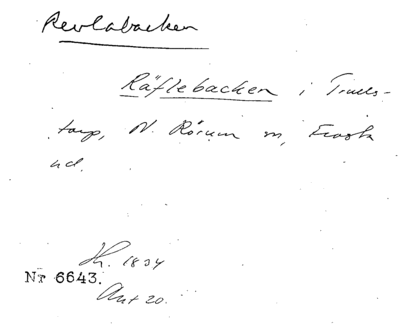 Revlabacken
Räflebacken i Truels-
torp, N. Rörum sn, Frosta
hd.
Hk. 1834
Nr 6643.
Ant 20.